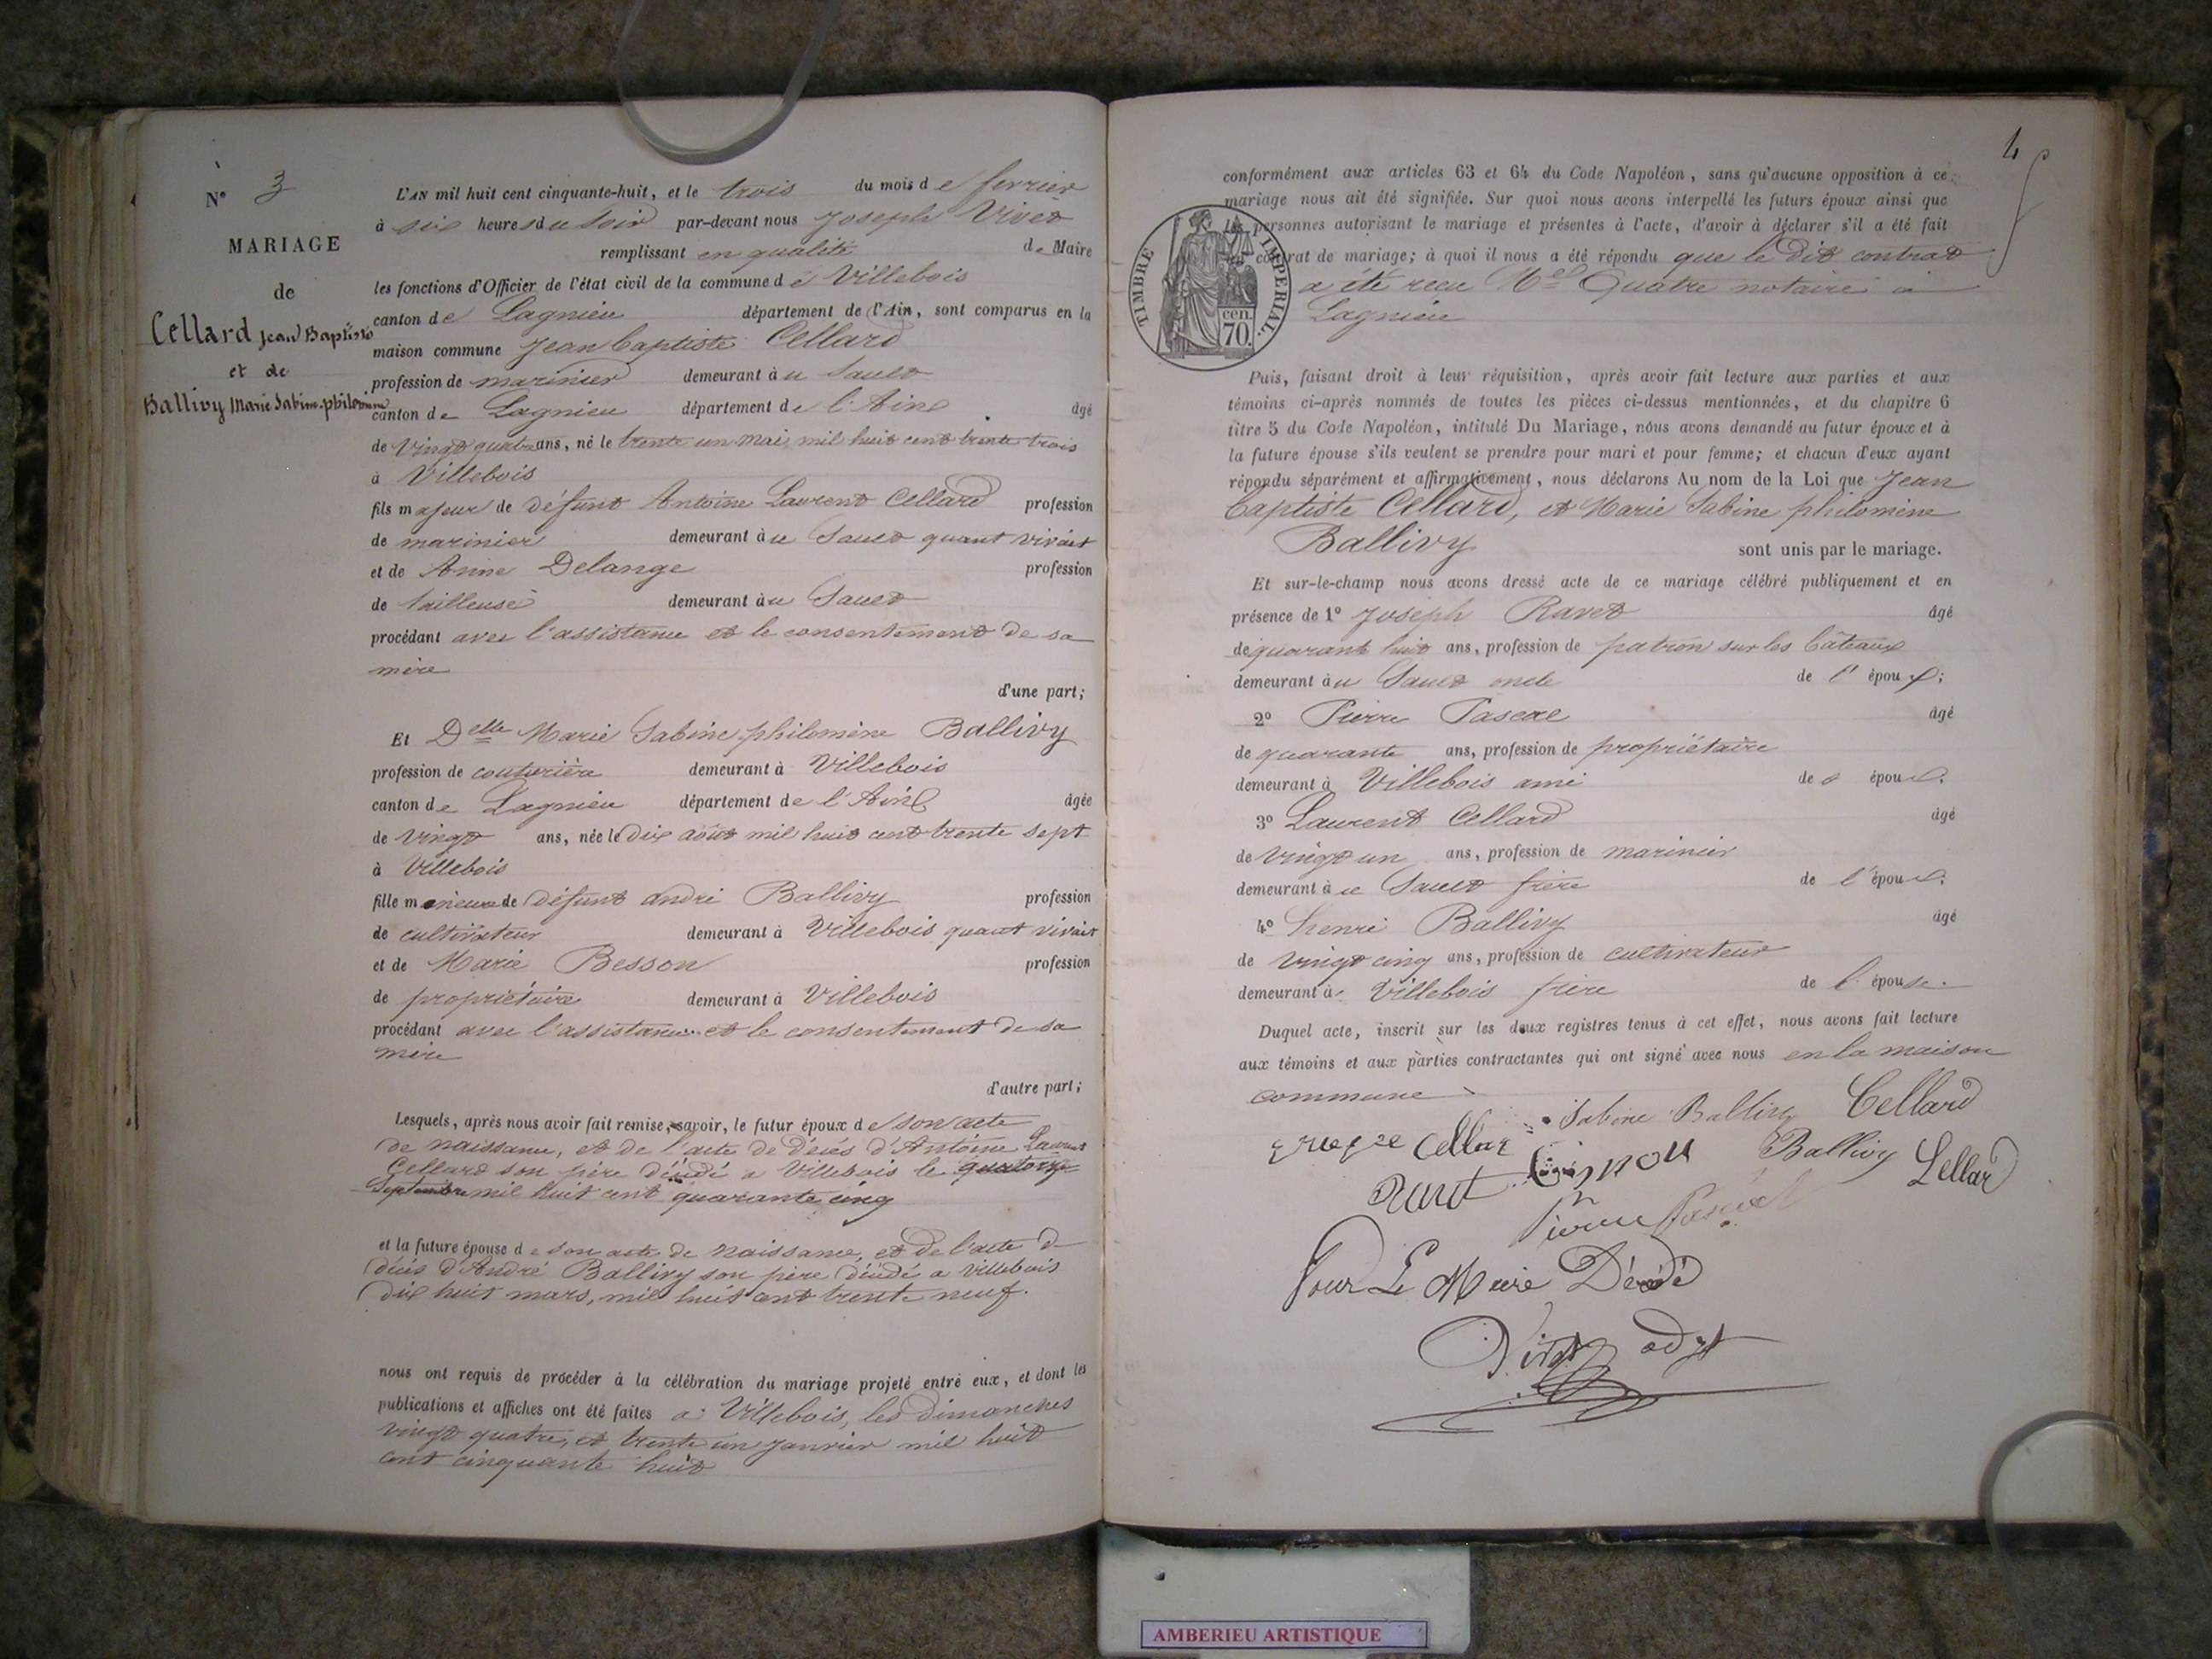 N° 3
MARIAGE
de
Cellard Jean Baptiste
et de
Ballivy Marie Sabine philomène
L'AN mil huit cent cinquante-huit, et le trois du mois de fevrier
à six heures du Soir par-devant nous Joseph Vivet
remplissant en qualité de Maire
les fonctions d'Officier de l'état civil de la commune de Villebois
canton de Lagnieu département de l'Ain, sont comparus en la
maison commune Jean baptiste Cellard
profession de marinier demeurant au Sault
canton de Lagnieu département de l'Ain âgé
de vingt quatre ans, né le trente un mai mil huit cent trente trois
à Villebois
fils majeur de défunt Antoine Laurent Cellard profession
de marinier demeurant au Sault quant vivait
et de Anne Delange profession
de tailleuse demeurant au Sault
procédant avec l'assistance et le consentement de sa
mère
d'une part;
Et Delle Marie Sabine philomène Ballivy
profession de couturière demeurant à Villebois
canton de Lagnieu département de l'Ain âgée
de vingt ans, née le dix août mil huit cent trente sept
à Villebois
fille mineure de défunt andré Ballivy profession
de cultivateur demeurant à Villebois quant vivait
et de Marie Besson profession
de propriétaire demeurant à Villebois
procédant avec l'assistance et le consentement de sa
mère
d'autre part;
Lesquels, après nous avoir fait remise, savoir, le futur époux de son acte
de naissance, et de l'acte de décés d'Antoine Laurent
Cellard son père décédé a Villebois le quatorze
Septembre mil huit cent quarante cinq
et la future épouse de son acte de naissance, et de l'acte de
décés d'André Ballivy son père décédé a Villebois
dix huit mars, mil huit cent trente neuf.
nous ont requis de procéder à la célébration du mariage projeté entre eux, et dont les
publications et affiches ont été faites a Villebois, les dimanches
vingt quatre, et trente un janvier mil huit
cent cinquante huit
4
conformément aux articles 63 et 64 du Code Napoléon, sans qu'aucune opposition à ce
mariage nous ait été signifiée. Sur quoi nous avons interpellé les futurs époux ainsi que
les personnes autorisant le mariage et présentes à l'acte, d'avoir à déclarer s'il a été fait
contrat de mariage; à quoi il nous a été répondu que le dit contrat
a été reçu Me Quatre notaire à
Lagnieu
TIMBRE IMPERIAL.
cen. 70.
Puis, faisant droit à leur réquisition, après avoir fait lecture aux parties et aux
témoins ci-après nommés de toutes les pièces ci-dessus mentionnées, et du chapitre 6
titre 5 du Code Napoléon, intitulé Du Mariage, nous avons demandé au futur époux et à
la future épouse s'ils veulent se prendre pour mari et pour femme; et chacun d'eux ayant
répondu séparément et affirmativement, nous déclarons Au nom de la Loi que Jean
baptiste Cellard, et Marie Sabine philomène
Ballivy sont unis par le mariage.
Et sur-le-champ nous avons dressé acte de ce mariage célébré publiquement et en
présence de 1° Joseph Ravet âgé
de quarant huit ans, profession de patron sur les bâteaux
demeurant au Sault oncle de l'époux;
2° Pierre Pascal âgé
de quarante ans, profession de propriétaire
demeurant à Villebois ami des époux;
3° Laurent Cellard âgé
de vingt un ans, profession de marinier
demeurant au Sault frère de l'époux;
4° henri Ballivy âgé
de vingt cinq ans, profession de cultivateur
demeurant à Villebois frère de l'épouse.
Duquel acte, inscrit sur les deux registres tenus à cet effet, nous avons fait lecture
aux témoins et aux parties contractantes qui ont signé avec nous en la maison
commune
Sabine Ballivy Cellard
Cellar Ballivy Cellard
Ravet
Pierre Pascal
Pour Le Maire Décédé
Vivet adjt
AMBERIEU ARTISTIQUE